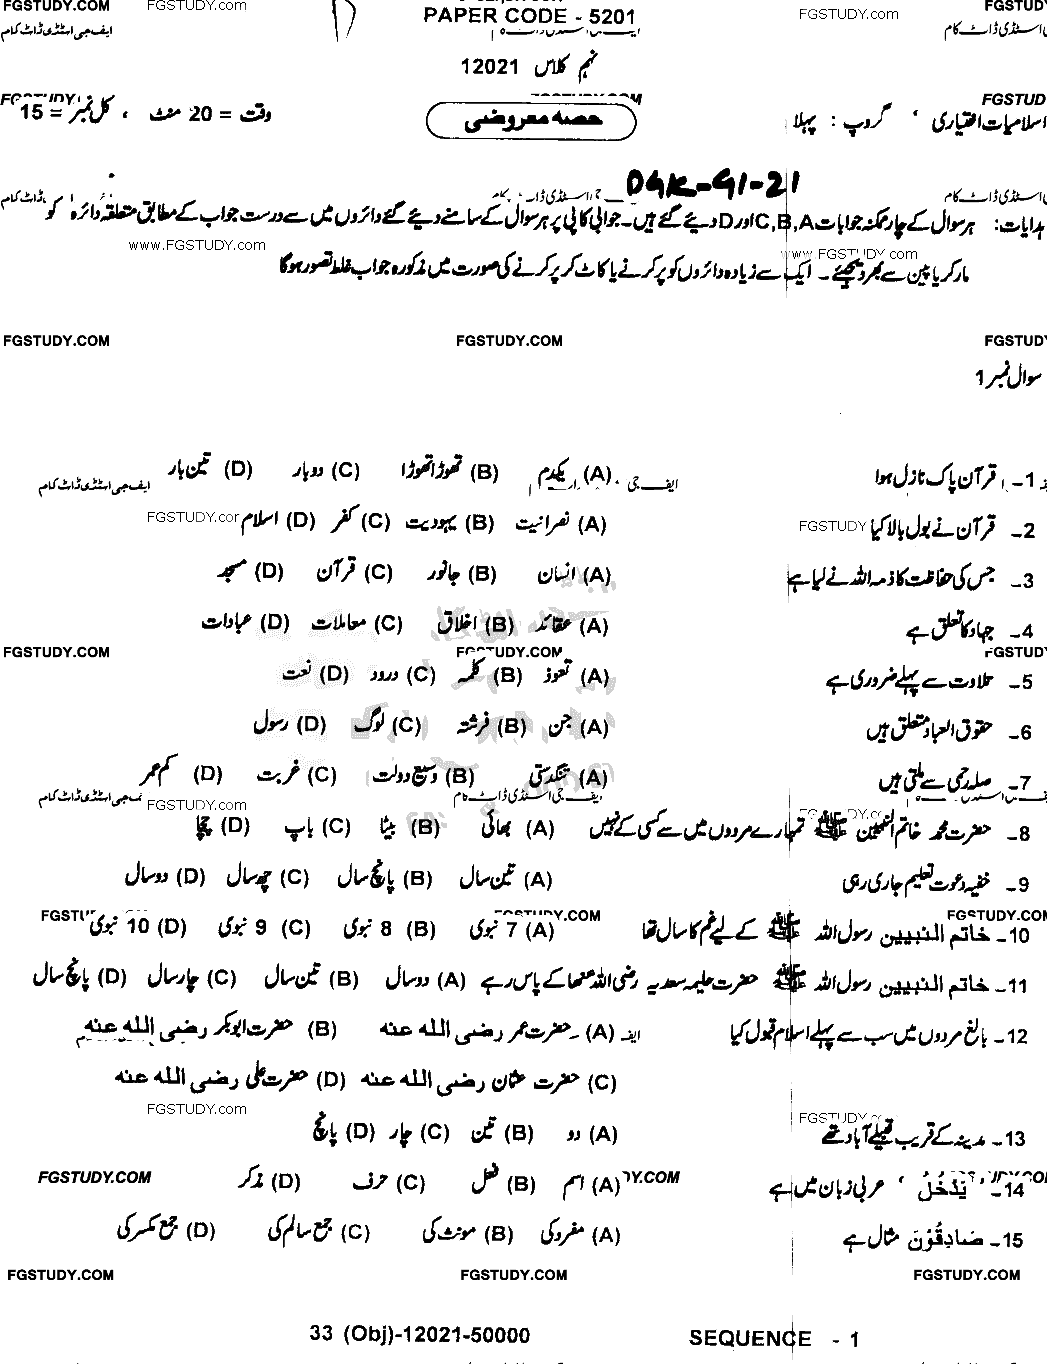 FGSTUDY.COM FGSTUDY.com PAPER CODE - 5201 FGSTUDY.com FGSTUD
ایف جی اسٹڈی ڈاٹ کام اسٹڈی ڈاٹ کام
نہم کلاس 12021
FGSTUD
اسلامیات اختیاری ، گروپ : پہلا حصہ معروضی وقت = 20 منٹ ، کل نمبر = 15
DGK-G1-21
ہدایات: ہر سوال کے چار ممکنہ جوابات A,B,C اور D دیئے گئے ہیں۔ جوابی کاپی پر ہر سوال کے سامنے دیئے گئے دائروں میں سے درست جواب کے مطابق متعلقہ دائرہ کو
www.FGSTUDY.com www.FGSTUDY.com
مارکر یا پین سے بھر دیجئے۔ ایک سے زیادہ دائروں کو پر کرنے یا کاٹ کر پر کرنے کی صورت میں مذکورہ جواب غلط تصور ہوگا
FGSTUDY.COM FGSTUDY.COM FGSTUD
سوال نمبر 1
1۔ قرآن پاک نازل ہوا (A) یکدم (B) تھوڑا تھوڑا (C) دوبار (D) تین بار
ایف جی اسٹڈی ڈاٹ کام
2۔ قرآن نے بول بالا کیا (A) نصرانیت (B) یہودیت (C) کفر (D) اسلام
3۔ جس کی حفاظت کا ذمہ اللہ نے لیا ہے (A) انسان (B) جانور (C) قرآن (D) مسجد
4۔ جہاد کا تعلق ہے (A) عقائد (B) اخلاق (C) معاملات (D) عبادات
FGSTUDY.COM FGSTUDY.COM FGSTUD
5۔ تلاوت سے پہلے ضروری ہے (A) تعوذ (B) کلمہ (C) درود (D) نعت
6۔ حقوق العباد متعلق ہیں (A) جن (B) فرشتہ (C) لوگ (D) رسول
7۔ صلہ رحمی سے ملتی ہیں (A) تنگدستی (B) وسیع دولت (C) غربت (D) کم عمر
ایف جی اسٹڈی ڈاٹ کام
FGSTUDY.com
8۔ حضرت محمد خاتم النبیین ﷺ تمہارے مردوں میں سے کسی کے نہیں (A) بھائی (B) بیٹا (C) باپ (D) چچا
9۔ خفیہ دعوت تعلیم جاری رہی (A) تین سال (B) پانچ سال (C) چھ سال (D) دو سال
FGSTUDY.COM
10۔ خاتم النبیین رسول اللہ ﷺ کے لیے غم کا سال تھا (A) 7 نبوی (B) 8 نبوی (C) 9 نبوی (D) 10 نبوی
11۔ خاتم النبیین رسول اللہ ﷺ حضرت حلیمہ سعدیہ رضی اللہ عنھا کے پاس رہے (A) دو سال (B) تین سال (C) چار سال (D) پانچ سال
12۔ بالغ مردوں میں سب سے پہلے اسلام قبول کیا (A) حضرت عمر رضی اللہ عنہ (B) حضرت ابوبکر رضی اللہ عنہ
(C) حضرت عثمان رضی اللہ عنہ (D) حضرت علی رضی اللہ عنہ
FGSTUDY.com
13۔ مدینہ کے قریب قبیلے آباد تھے (A) دو (B) تین (C) چار (D) پانچ
FGSTUDY.COM
14۔ "یَدْخُلُ" عربی زبان میں ہے (A) اسم (B) فعل (C) حرف (D) مذکر
15۔ صَادِقُوْنَ مثال ہے (A) مفرد کی (B) مونث کی (C) جمع سالم کی (D) جمع مکسر کی
FGSTUDY.COM FGSTUDY.COM FGSTUDY.COM
33 (Obj)-12021-50000 SEQUENCE - 1